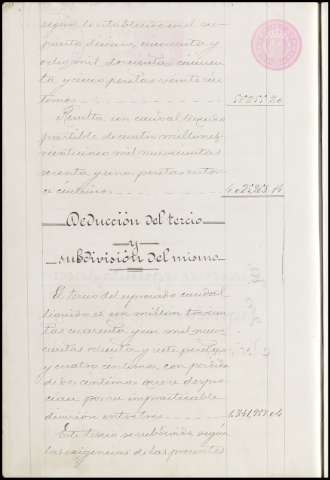 según lo establecido en el su-
puesto décimo, cincuenta y
ocho mil doscientas cincuen-
ta y cinco pesetas veinte cén-
timos
Resulta un caudal líquido
partible de cuatro millones
veinticinco mil novecientas
sesenta y una pesetas
céntimos
Deducción del tercio
y
subdivisión del mismo
El tercio del expresado caudal
líquido es un millón trescien-
tas cuarenta y un mil nove-
cientas ochenta y siete pesetas
y cuatro céntimos, con pérdida
de dos céntimos que se despre-
cian por su impracticable
división entre tres
Este tercio se subdivide según
las exigencias de las presentes